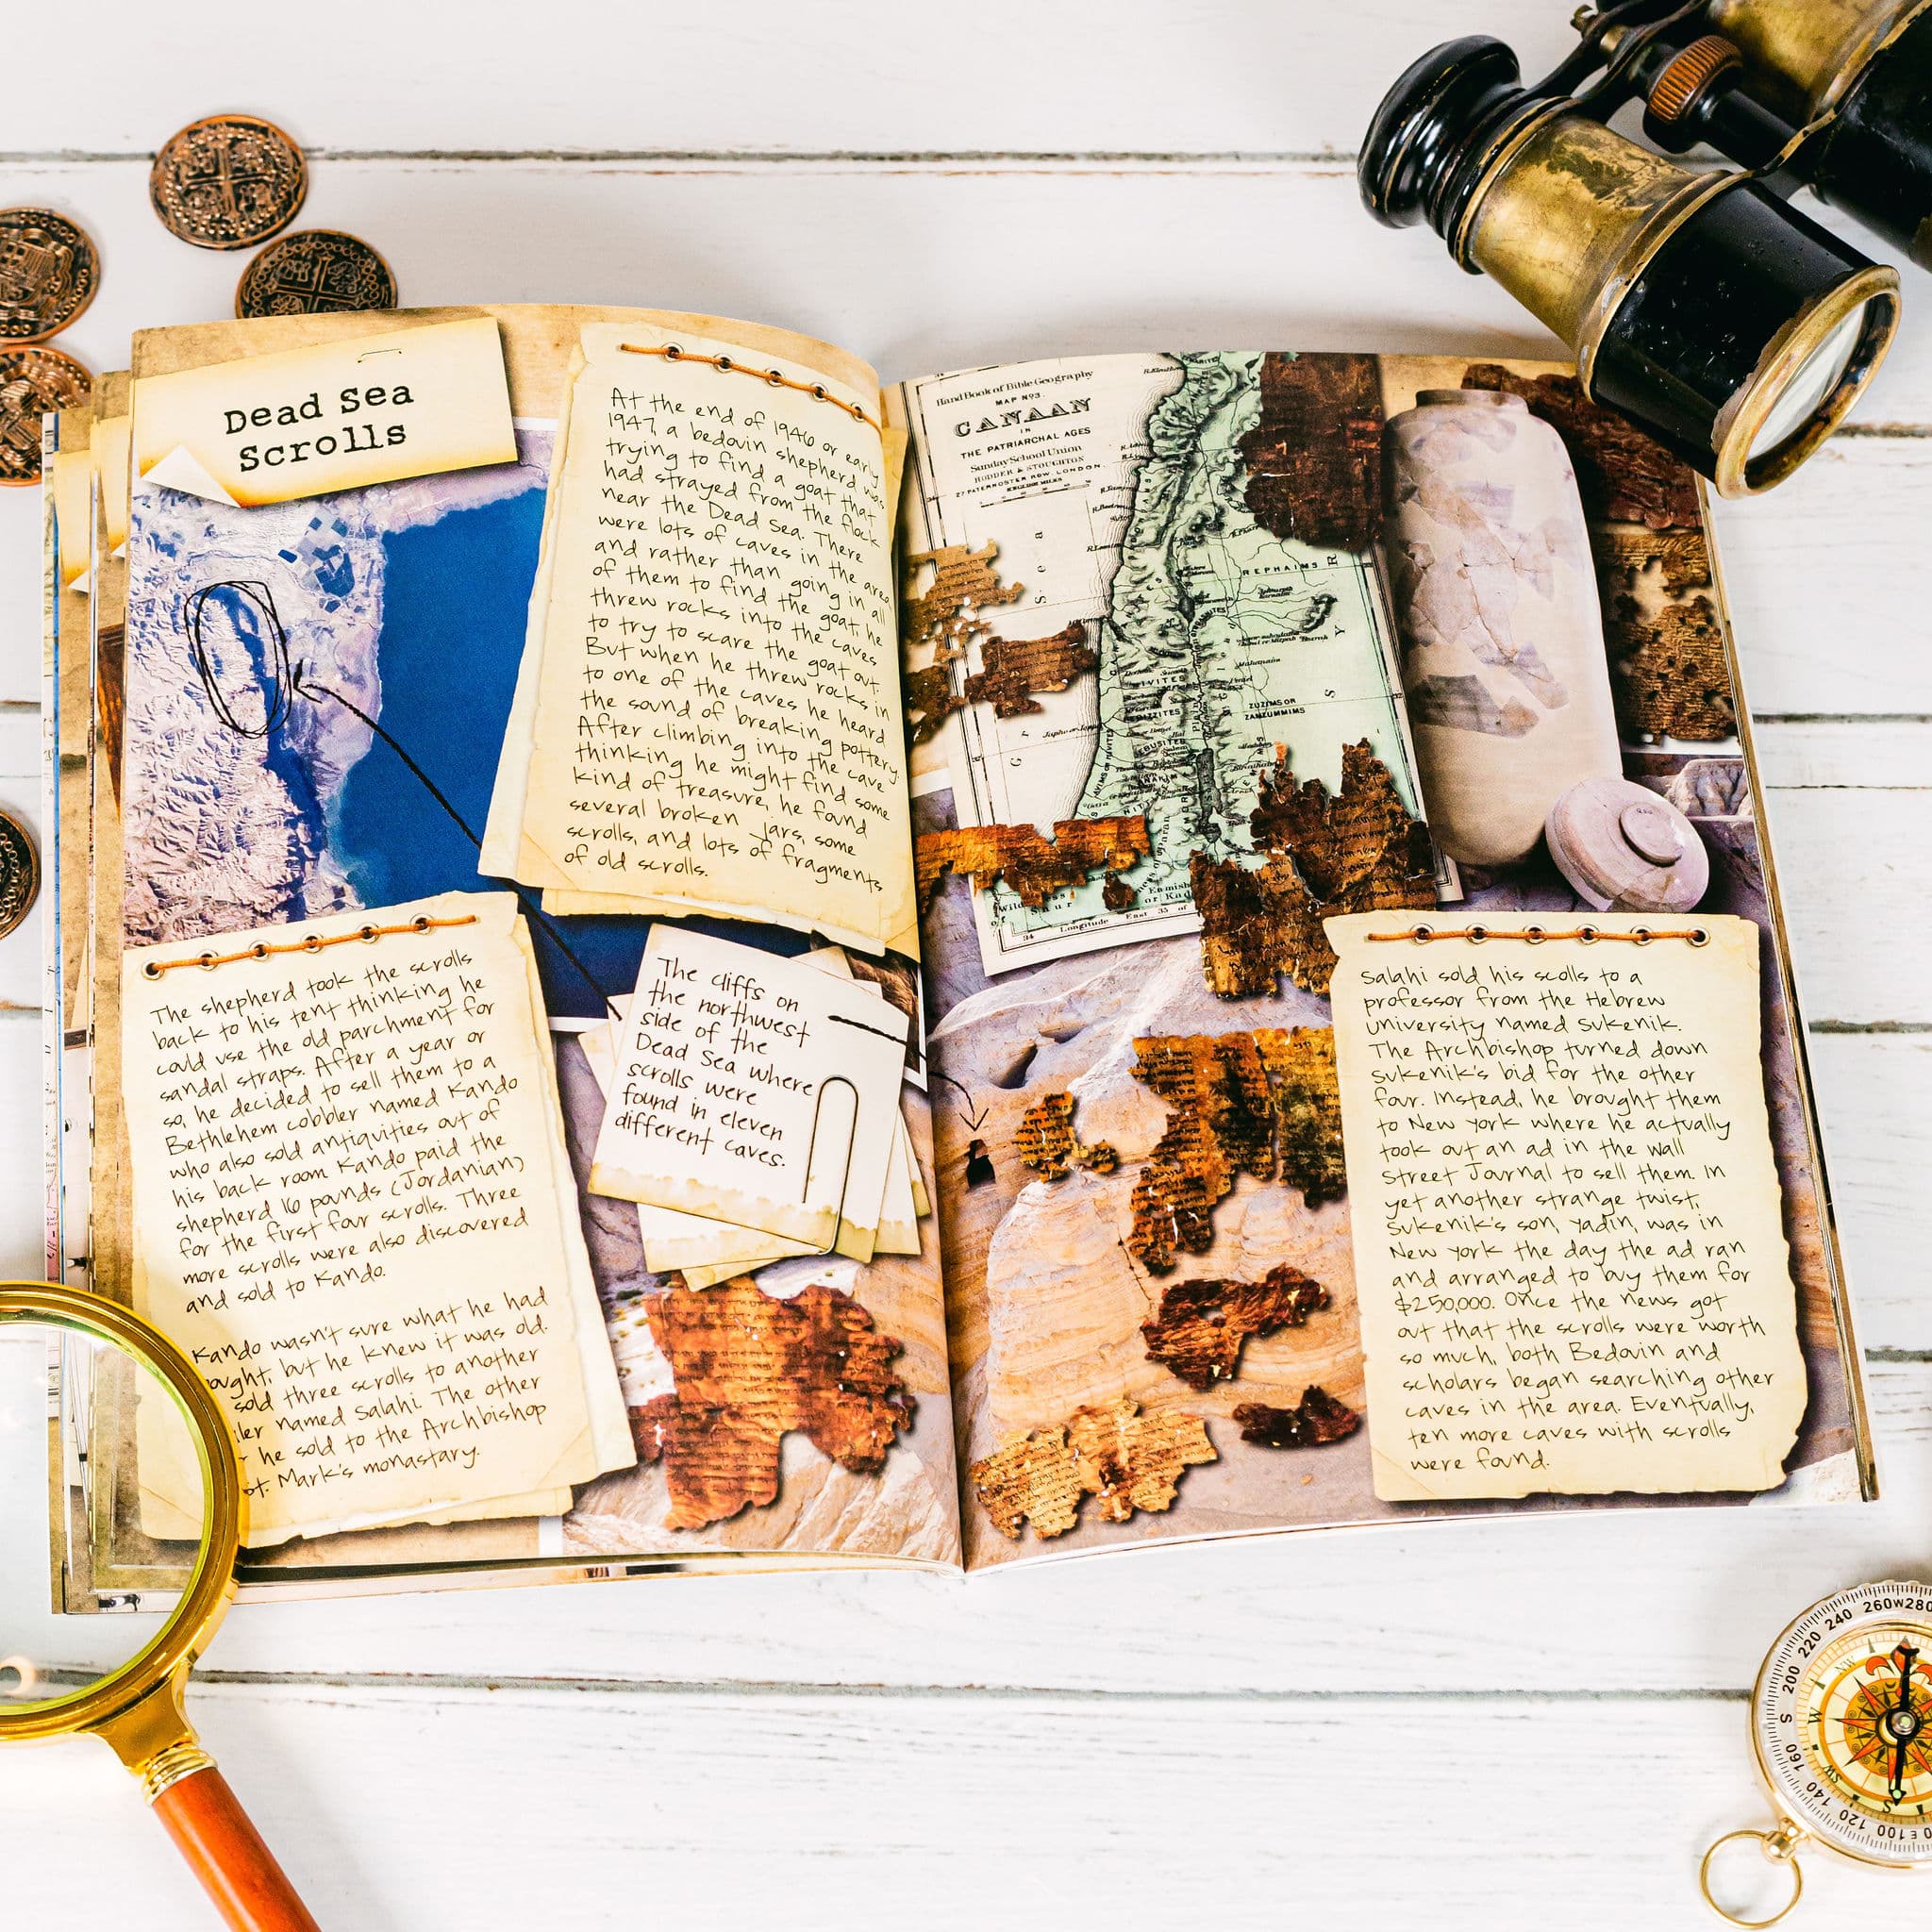 Dead Sea
Scrolls
At the end of 1946 or early
1947, a bedouin shepherd was
trying to find a goat that
had strayed from the flock
near the Dead Sea. There
were lots of caves in the area
and rather than going in all
of them to find the goat, he
threw rocks into the caves
to try to scare the goat out.
But when he threw rocks in
to one of the caves he heard
the sound of breaking pottery.
After climbing into the cave
thinking he might find some
kind of treasure, he found
several broken jars, some
scrolls, and lots of fragments
of old scrolls.
The shepherd took the scrolls
back to his tent thinking he
could use the old parchment for
sandal straps. After a year or
so, he decided to sell them to a
Bethlehem cobbler named Kando
who also sold antiquities out of
his back room Kando paid the
shepherd 16 pounds (Jordanian)
for the first four scrolls. Three
more scrolls were also discovered
and sold to Kando.
Kando wasn't sure what he had
ought, but he knew it was old.
sold three scrolls to another
ler named Salahi. The other
he sold to the Archbishop
ot. Mark's monastary.
The cliffs on
the northwest
side of the
Dead Sea where
scrolls were
found in eleven
different caves.
Hand Book of Bible Geography
MAP Nº3.
CANAAN
IN
THE PATRIARCHAL AGES
Sunday School Union
HODDER & STOUGHTON
27 PATERNOSTER ROW, LONDON.
ENGLISH MILES
REPHAIMS
ZUZIMS OR
ZAMZUMMIMS
Longitude East 35 of
Salahi sold his scolls to a
professor from the Hebrew
University named Sukenik.
The Archbishop turned down
Sukenik's bid for the other
four. Instead, he brought them
to New York where he actually
took out an ad in the Wall
Street Journal to sell them. In
yet another strange twist,
Sukenik's son, Yadin, was in
New York the day the ad ran
and arranged to buy them for
$250,000. Once the news got
out that the scrolls were worth
so much, both Bedouin and
scholars began searching other
caves in the area. Eventually,
ten more caves with scrolls
were found.
200 220 240 260 W 280
S 160 140 120 E 100
NW W SW S